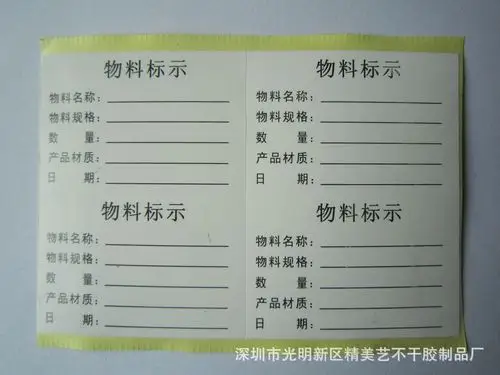 物料标示
物料名称：
物料规格：
数 量：
产品材质：
日 期：
物料标示
物料名称：
物料规格：
数 量：
产品材质：
日 期：
物料标示
物料名称：
物料规格：
数 量：
产品材质：
日 期：
物料标示
物料名称：
物料规格：
数 量：
产品材质：
日 期：
深圳市光明新区精美艺不干胶制品厂